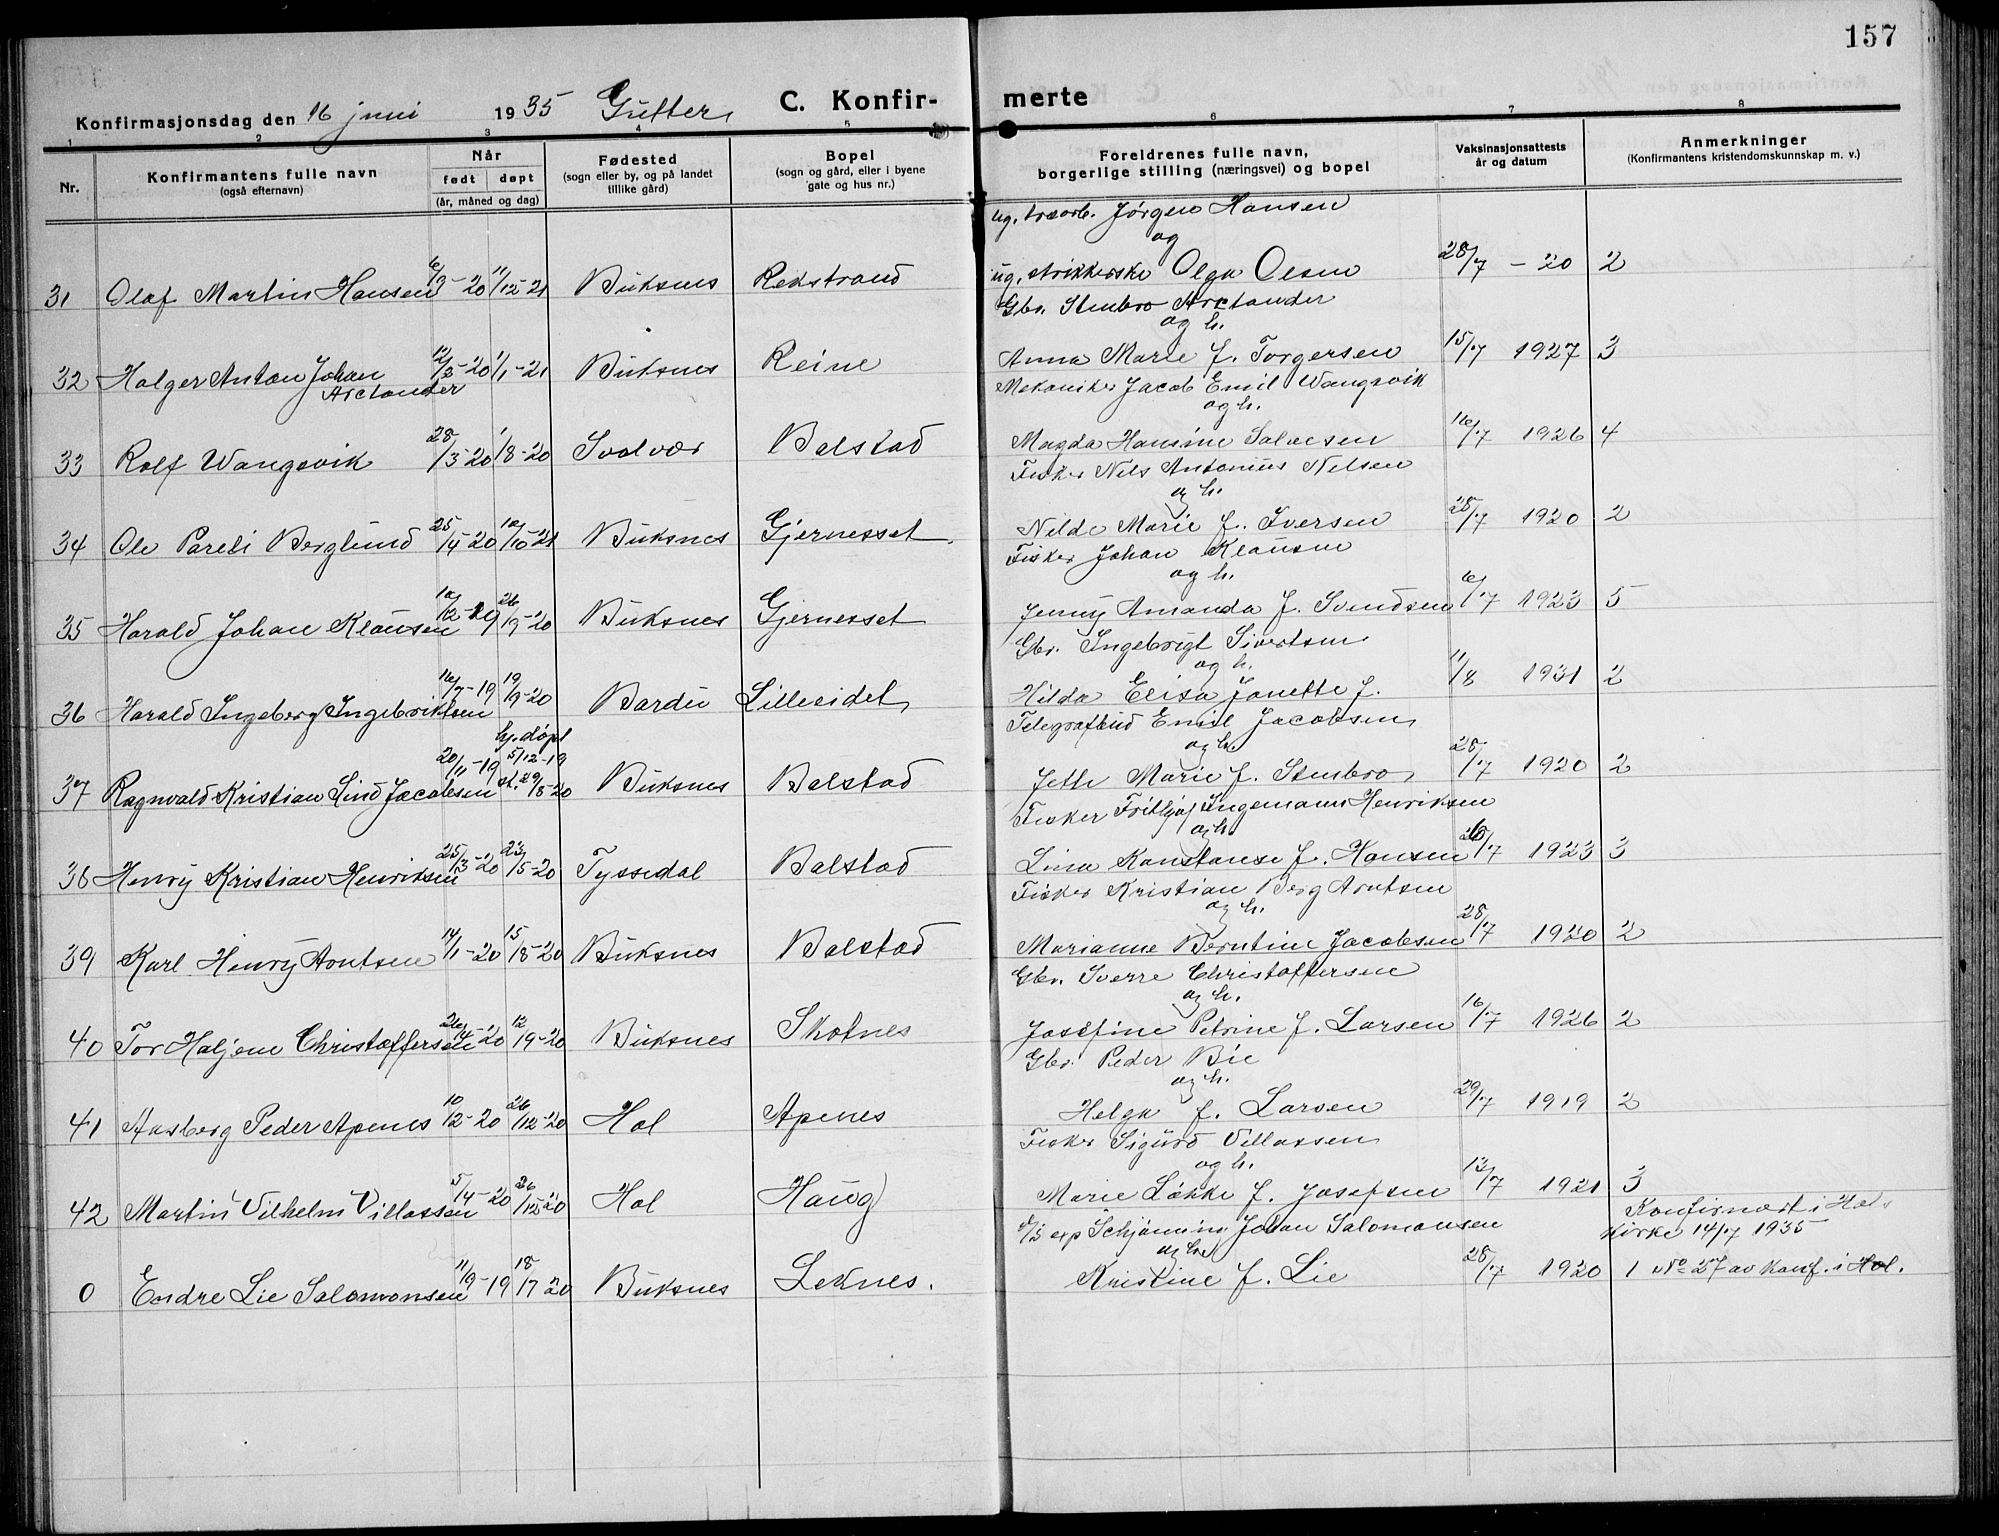 157
Konfirmasjonsdag den 16 juni 1935 Gutter C. Konfir- merte
1 2 3 4 5 6 7 8
Nr.
Konfirmantens fulle navn
(også efternavn)
Når
født døpt
(år, måned og dag)
Fødested
(sogn eller by, og på landet
tillike gård)
Bopel
(sogn og gård, eller i byene
gate og hus nr.)
Foreldrenes fulle navn,
borgerlige stilling (næringsvei) og bopel
Vaksinasjonsattests
år og datum
Anmerkninger
(Konfirmantens kristendomskunnskap m. v.)
ug. træarb. Jørgen Hansen
og
31 Olaf Martin Hansen 6/3-20 11/12-21 Buksnes Rekstrand ug. strikkerske Olga Olsen 28/7 - 20 2
Gbr. Stenbro Arctander
og h.
32 Holger Anton Johan 12/5-20 1/1-21 Buksnes Reine Anna Marie f. Torgersen 15/7 1927 3
Arctander
Mekaniker Jacob Emil Wangsvik
og h.
33 Rolf Wangsvik 28/3-20 1/8-20 Svolvær Balstad Magda Hansine Salvesen 16/7 1926 4
Fisker Nils Antonius Nilsen
og h.
34 Ole Pareli Berglund 25/4-20 10/10-21 Buksnes Gjernesset Nilde Marie f. Iversen 28/7 1920 2
Fisker Johan Klausen
og h.
35 Harald Johan Klausen 10/12-19 26/9-20 Buksnes Gjernesset Jenny Amanda f. Svendsen 6/7 1923 5
Gbr. Ingebrigt Sivertsen
og h.
36 Harald Ingeberg Ingebriktsen 16/7-19 19/9-20 Bardu Lilleeidet Hilda Elisa Janette f. 11/8 1931 2
Telegrafbud Emil Jacobsen
og h.
hj. døpt
5/12-19
37 Ragnvald Kristian Lind Jacobsen 20/11-19 st. 29/8-20 Buksnes Balstad Jette Marie f. Stenbro 28/7 1920 2
Fisker Frithjof Ingemann Henriksen
og h.
38 Henry Kristian Henriksen 25/3-20 23/5-20 Tyssedal Balstad Lina Konstanse f. Hansen 26/7 1923 3
Fisker Kristian Berg Arntsen
og h.
39 Karl Henry Arntsen 14/1-20 15/8-20 Buksnes Balstad Marianne Berntine Jacobsen 28/7 1920 2
Gbr. Sverre Christoffersen
og h.
40 Tor Haljem Christoffersen 26/4-20 12/9-20 Buksnes Skotnes Josefine Petrine f. Larsen 16/7 1926 2
Gbr. Peder Bie
og h.
41 Aasberg Peder Apenes 10/2-20 26/12-20 Hol Apenes Helga f. Larsen 29/7 1919 2
Fisker Sigurd Villassen
og h.
42 Martin Vilhelm Villassen 5/4-20 26/12-20 Hol Haug Marie Løkke f. Josefsen 13/7 1921 3
Konfirmert i Hol
kirke 14/7 1935
d/s exp Schjønning Johan Salomonsen
og h.
0 Endre Lie Salomonsen 11/9-19 18/7 20 Buksnes Leknes. Kristine f. Lie 28/7 1920 1 No 27 av konf. i Hol.